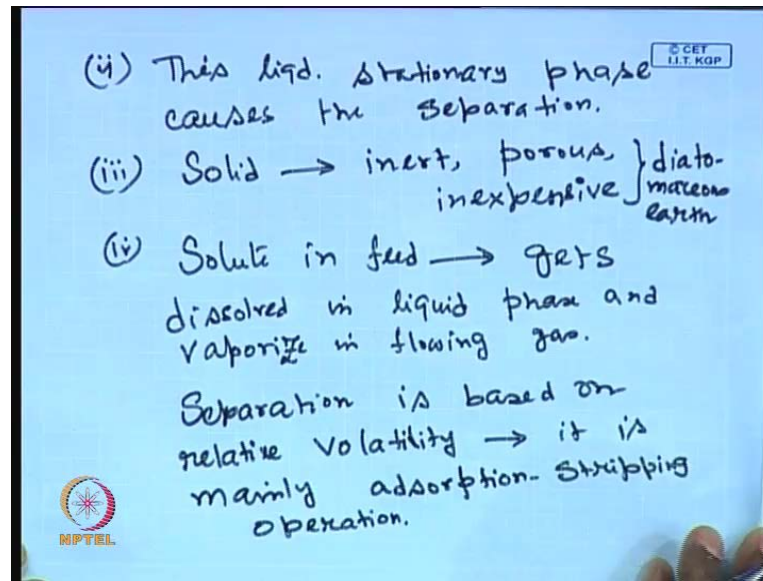 © CET
I.I.T. KGP
(ii) This liqd. stationary phase
causes the separation.
(iii) Solid → inert, porous, } diato-
inexpensive maceous
earth
(iv) Solute in feed → gets
dissolved in liquid phase and
vaporize in flowing gas.
Separation is based on
relative volatility → it is
mainly adsorption- stripping
operation.
NPTEL